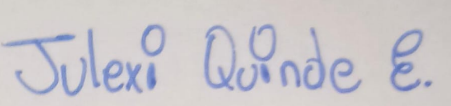 Julexi Quinde E.